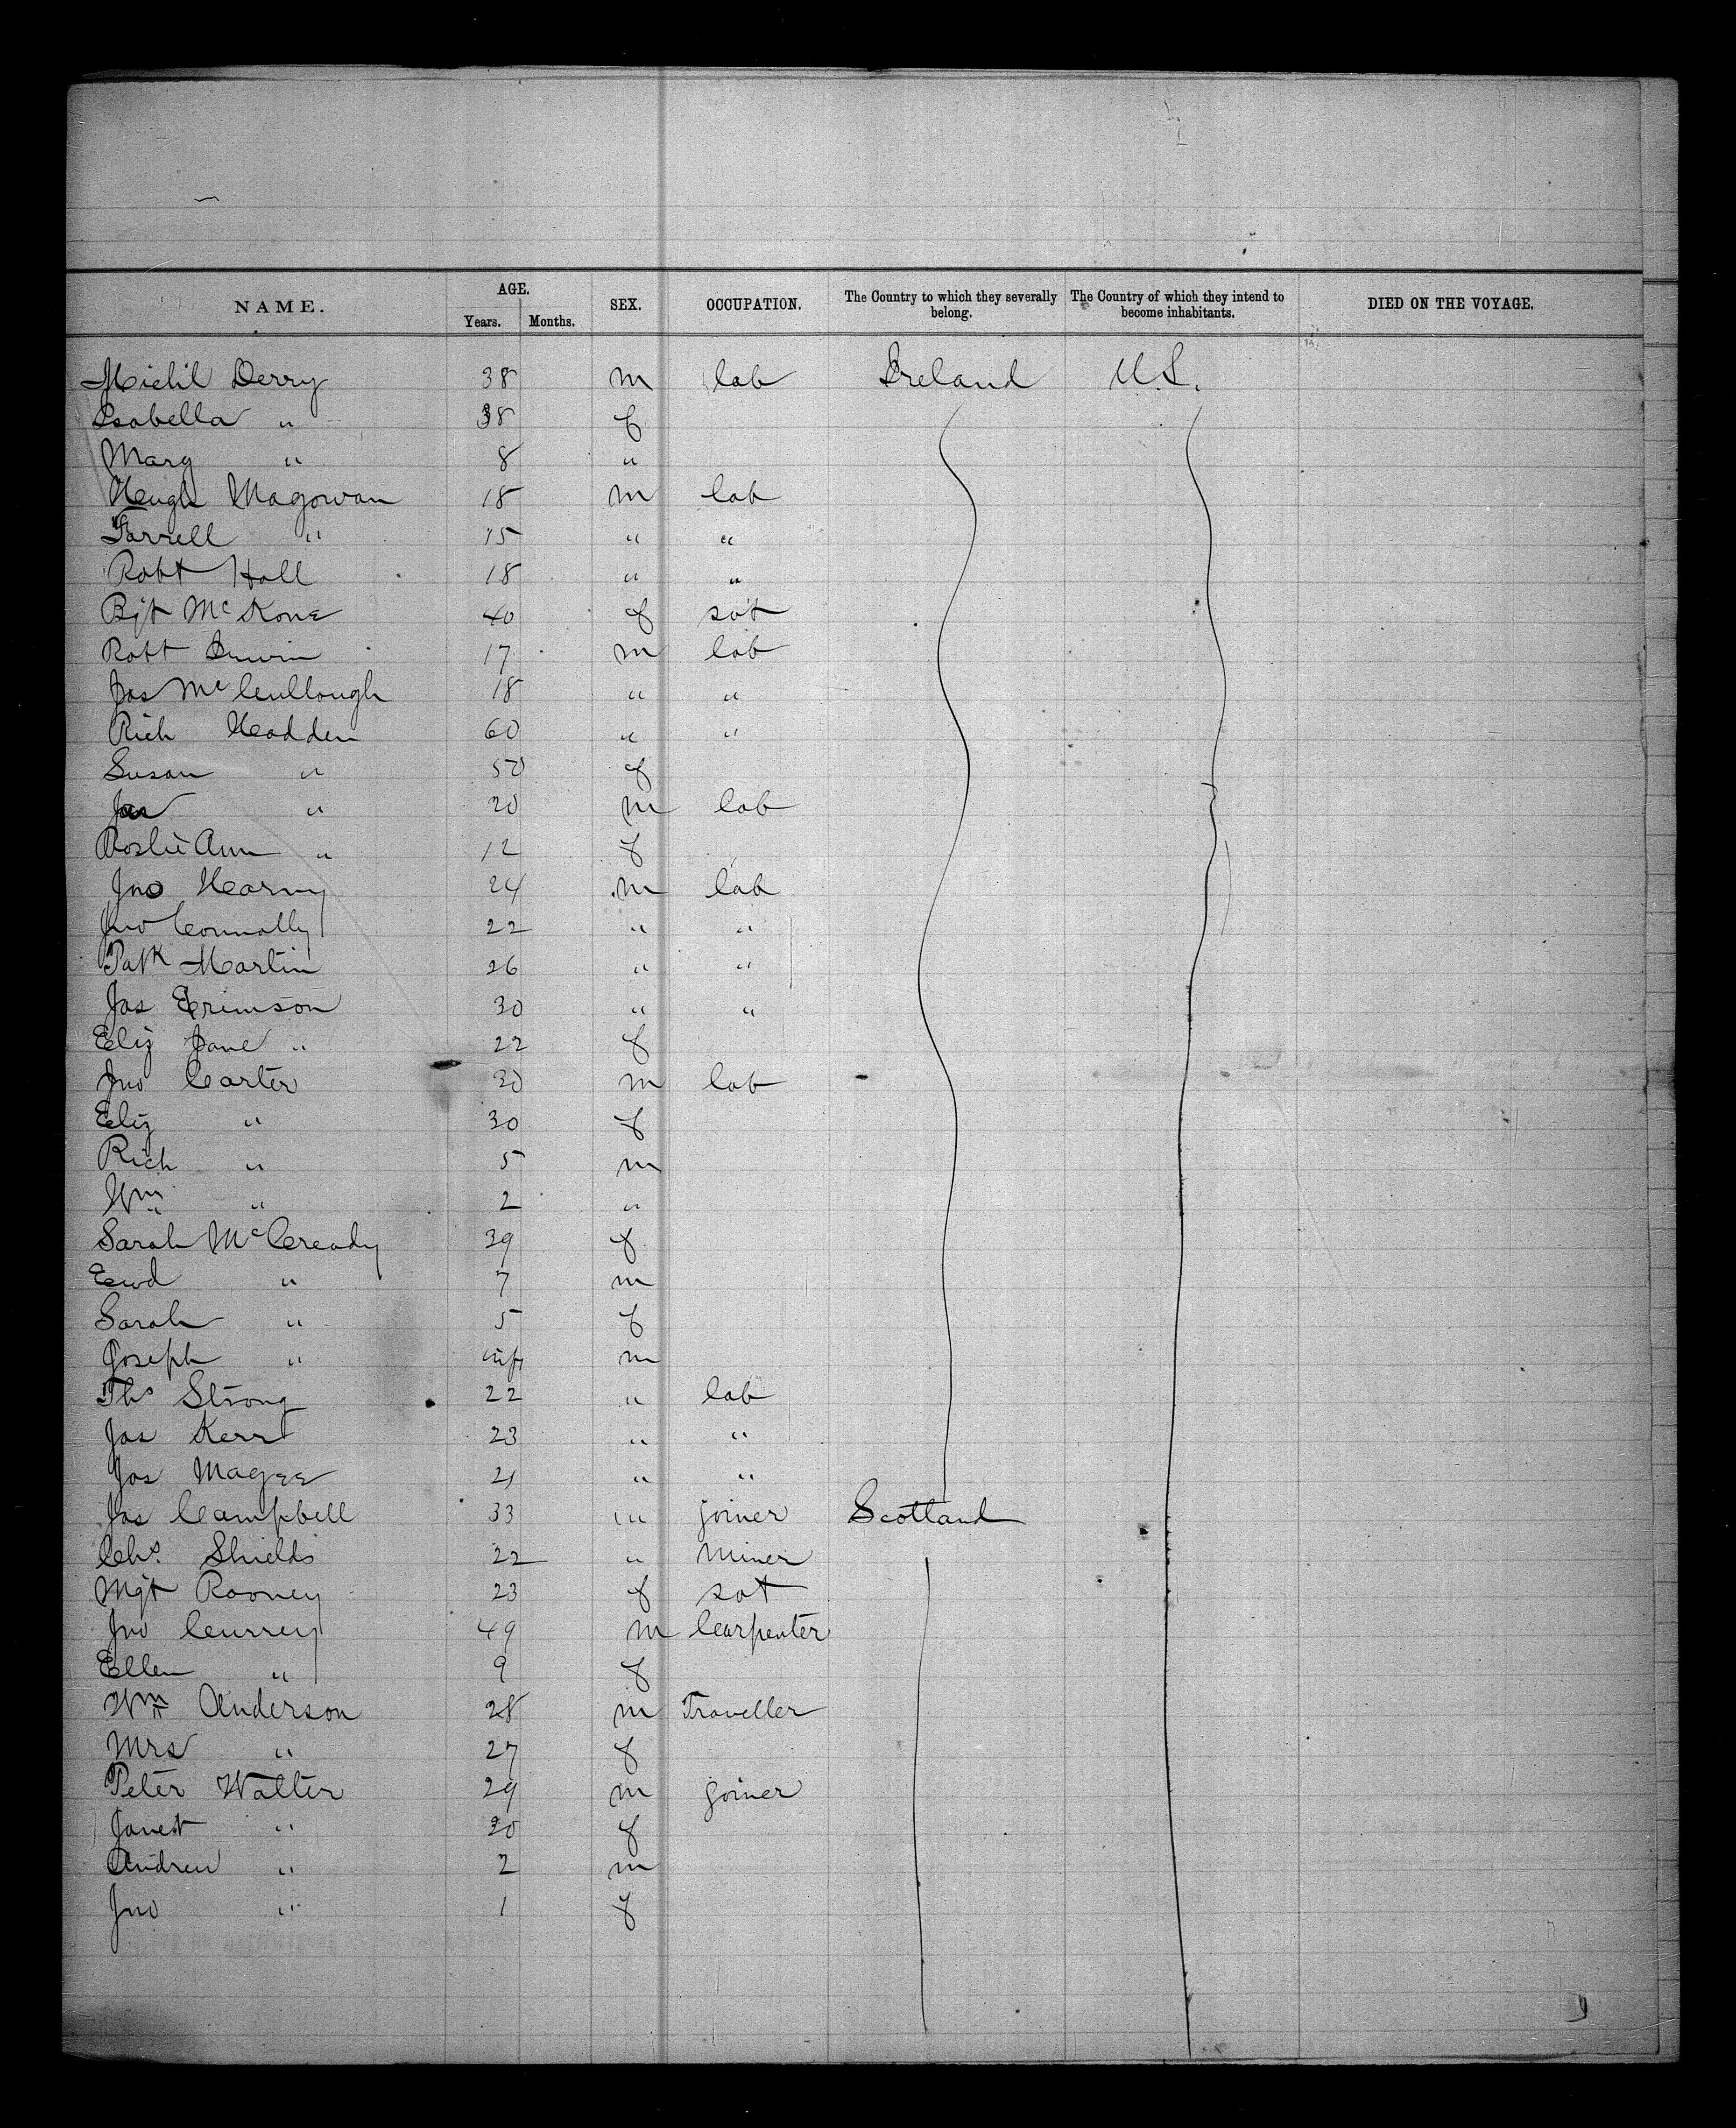 NAME. AGE. Years. Months. SEX. OCCUPATION. The Country to which they severally belong. The Country of which they intend to become inhabitants. DIED ON THE VOYAGE.
Michil Derry 38 m lab Ireland U.S.
Isabella " 38 f
Mary " 8 "
Hugh Magowan 18 m lab
Farrell " 15 " "
Robt Hall 18 " "
Bgt McKone 40 f sot
Robt Irwin 17 m lab
Jas McCullough 18 " "
Rich Hadden 60 " "
Susan " 50 f
Jas " 20 m lab
Ann " 12 f
Jno Hearny 24 m lab
Jno Connolly 22 " "
Patk Martin 26 " "
Jas Crimson 30 " "
Eliz Jane " 22 f
Jno Carter 30 m lab
Eliz " 30 f
Rich " 5 m
Wm " 2 "
Sarah McCready 39 f
Ewd " 7 m
Sarah " 5 f
Joseph " inft m
Ths Strong 22 " lab
Jas Kerr 23 " "
Jas Magee 21 " "
Jas Campbell 33 " joiner Scotland
Chs. Shields 22 " Miner
Mgt Rooney 23 f sot
Jno Currey 49 m Carpenter
Ellen " 9 f
Wm Anderson 28 m Traveller
Mrs " 27 f
Peter Walter 29 m joiner
Janet " 30 f
Andrew " 2 m
Jno " 1 f